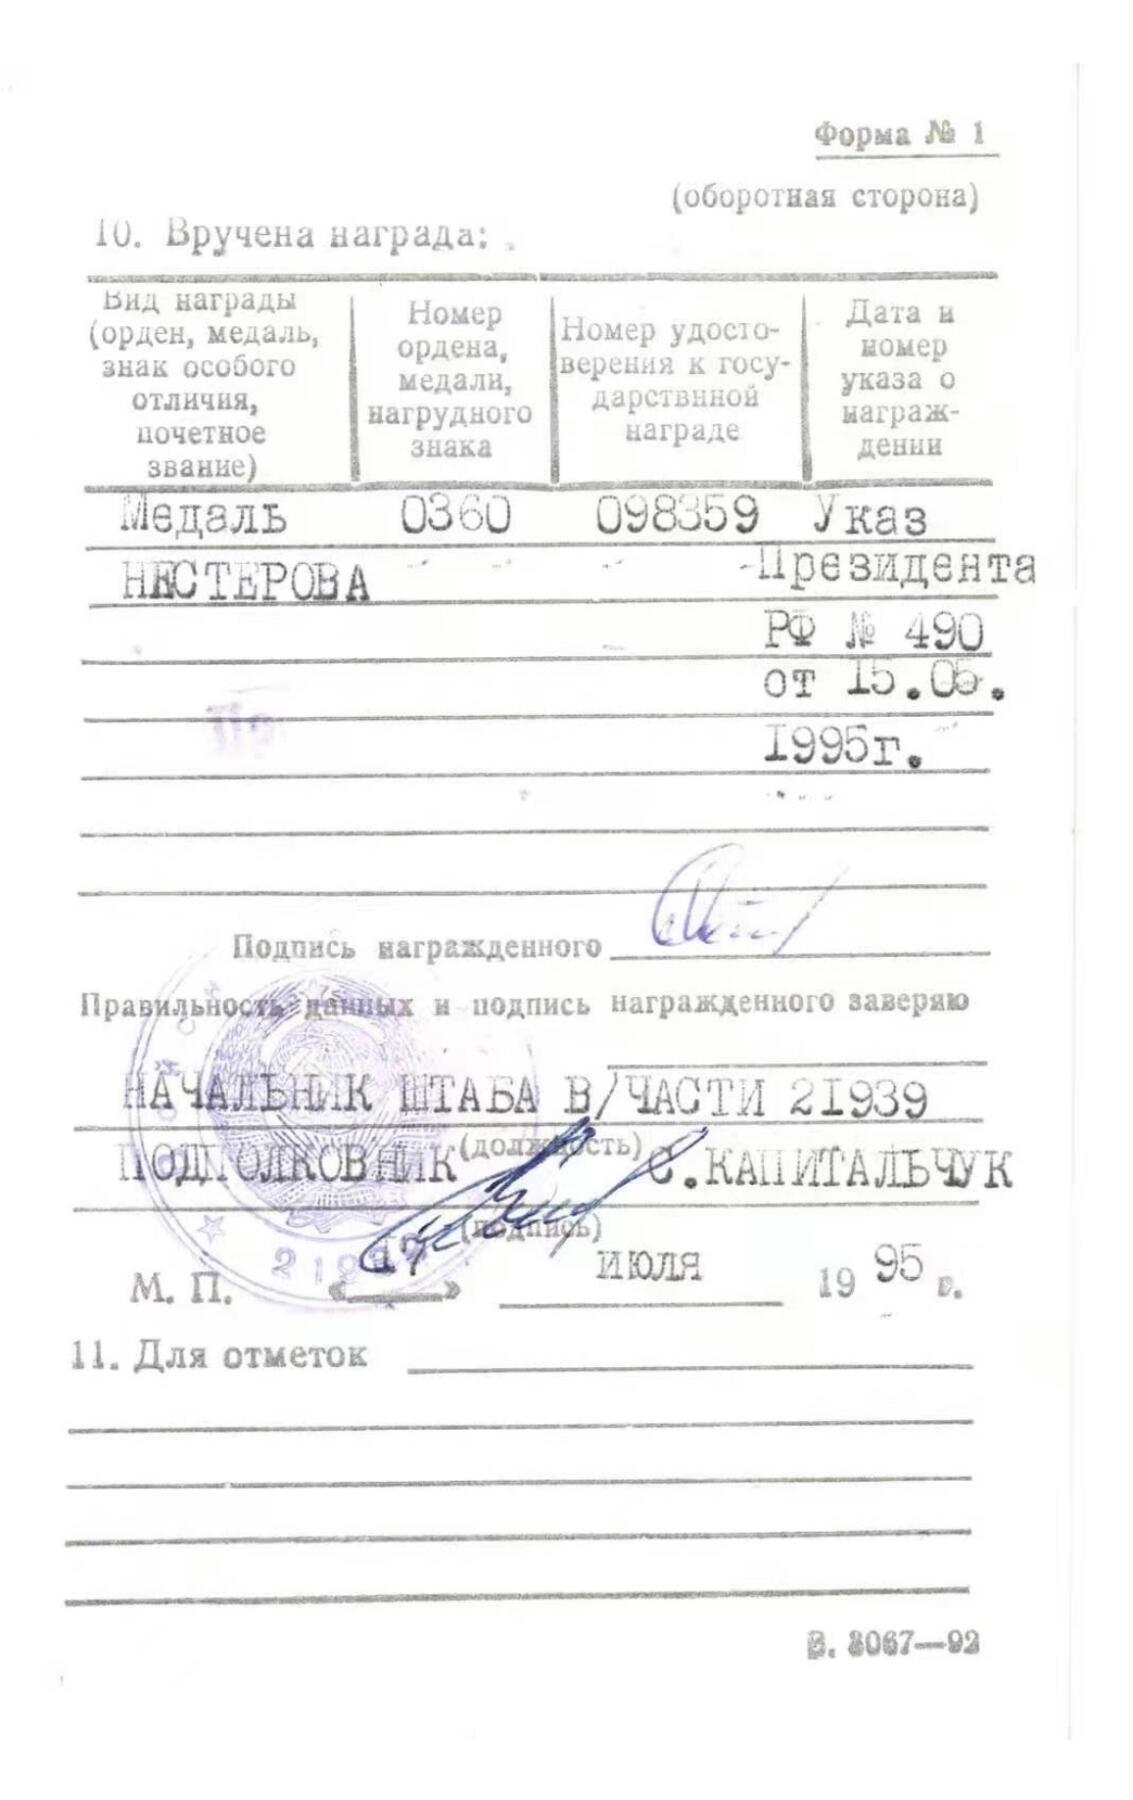 Форма № 1
(оборотная сторона)
10. Вручена награда:
Вид награды
(орден, медаль,
знак особого
отличия,
почетное
звание)
Номер
ордена,
медали,
нагрудного
знака
Номер удосто-
верения к госу-
дарствнной
награде
Дата и
номер
указа о
награж-
дении
Медаль 0360 098359 Указ
НЕСТЕРОВА Президента
РФ № 490
от 15.05.
1995г.
Подпись награжденного
Правильность данных и подпись награжденного заверяю
НАЧАЛЬНИК ШТАБА В/ЧАСТИ 21939
(должность)
ПОДПОЛКОВНИК С.КАПИТАЛЬЧУК
(подпись)
М. П. «17» июля 1995 г.
11. Для отметок
В. 3067—92